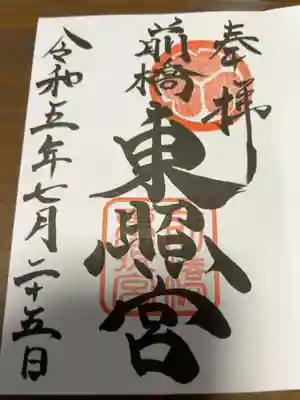 奉拝
前橋
東照宮
令和五年七月二十五日